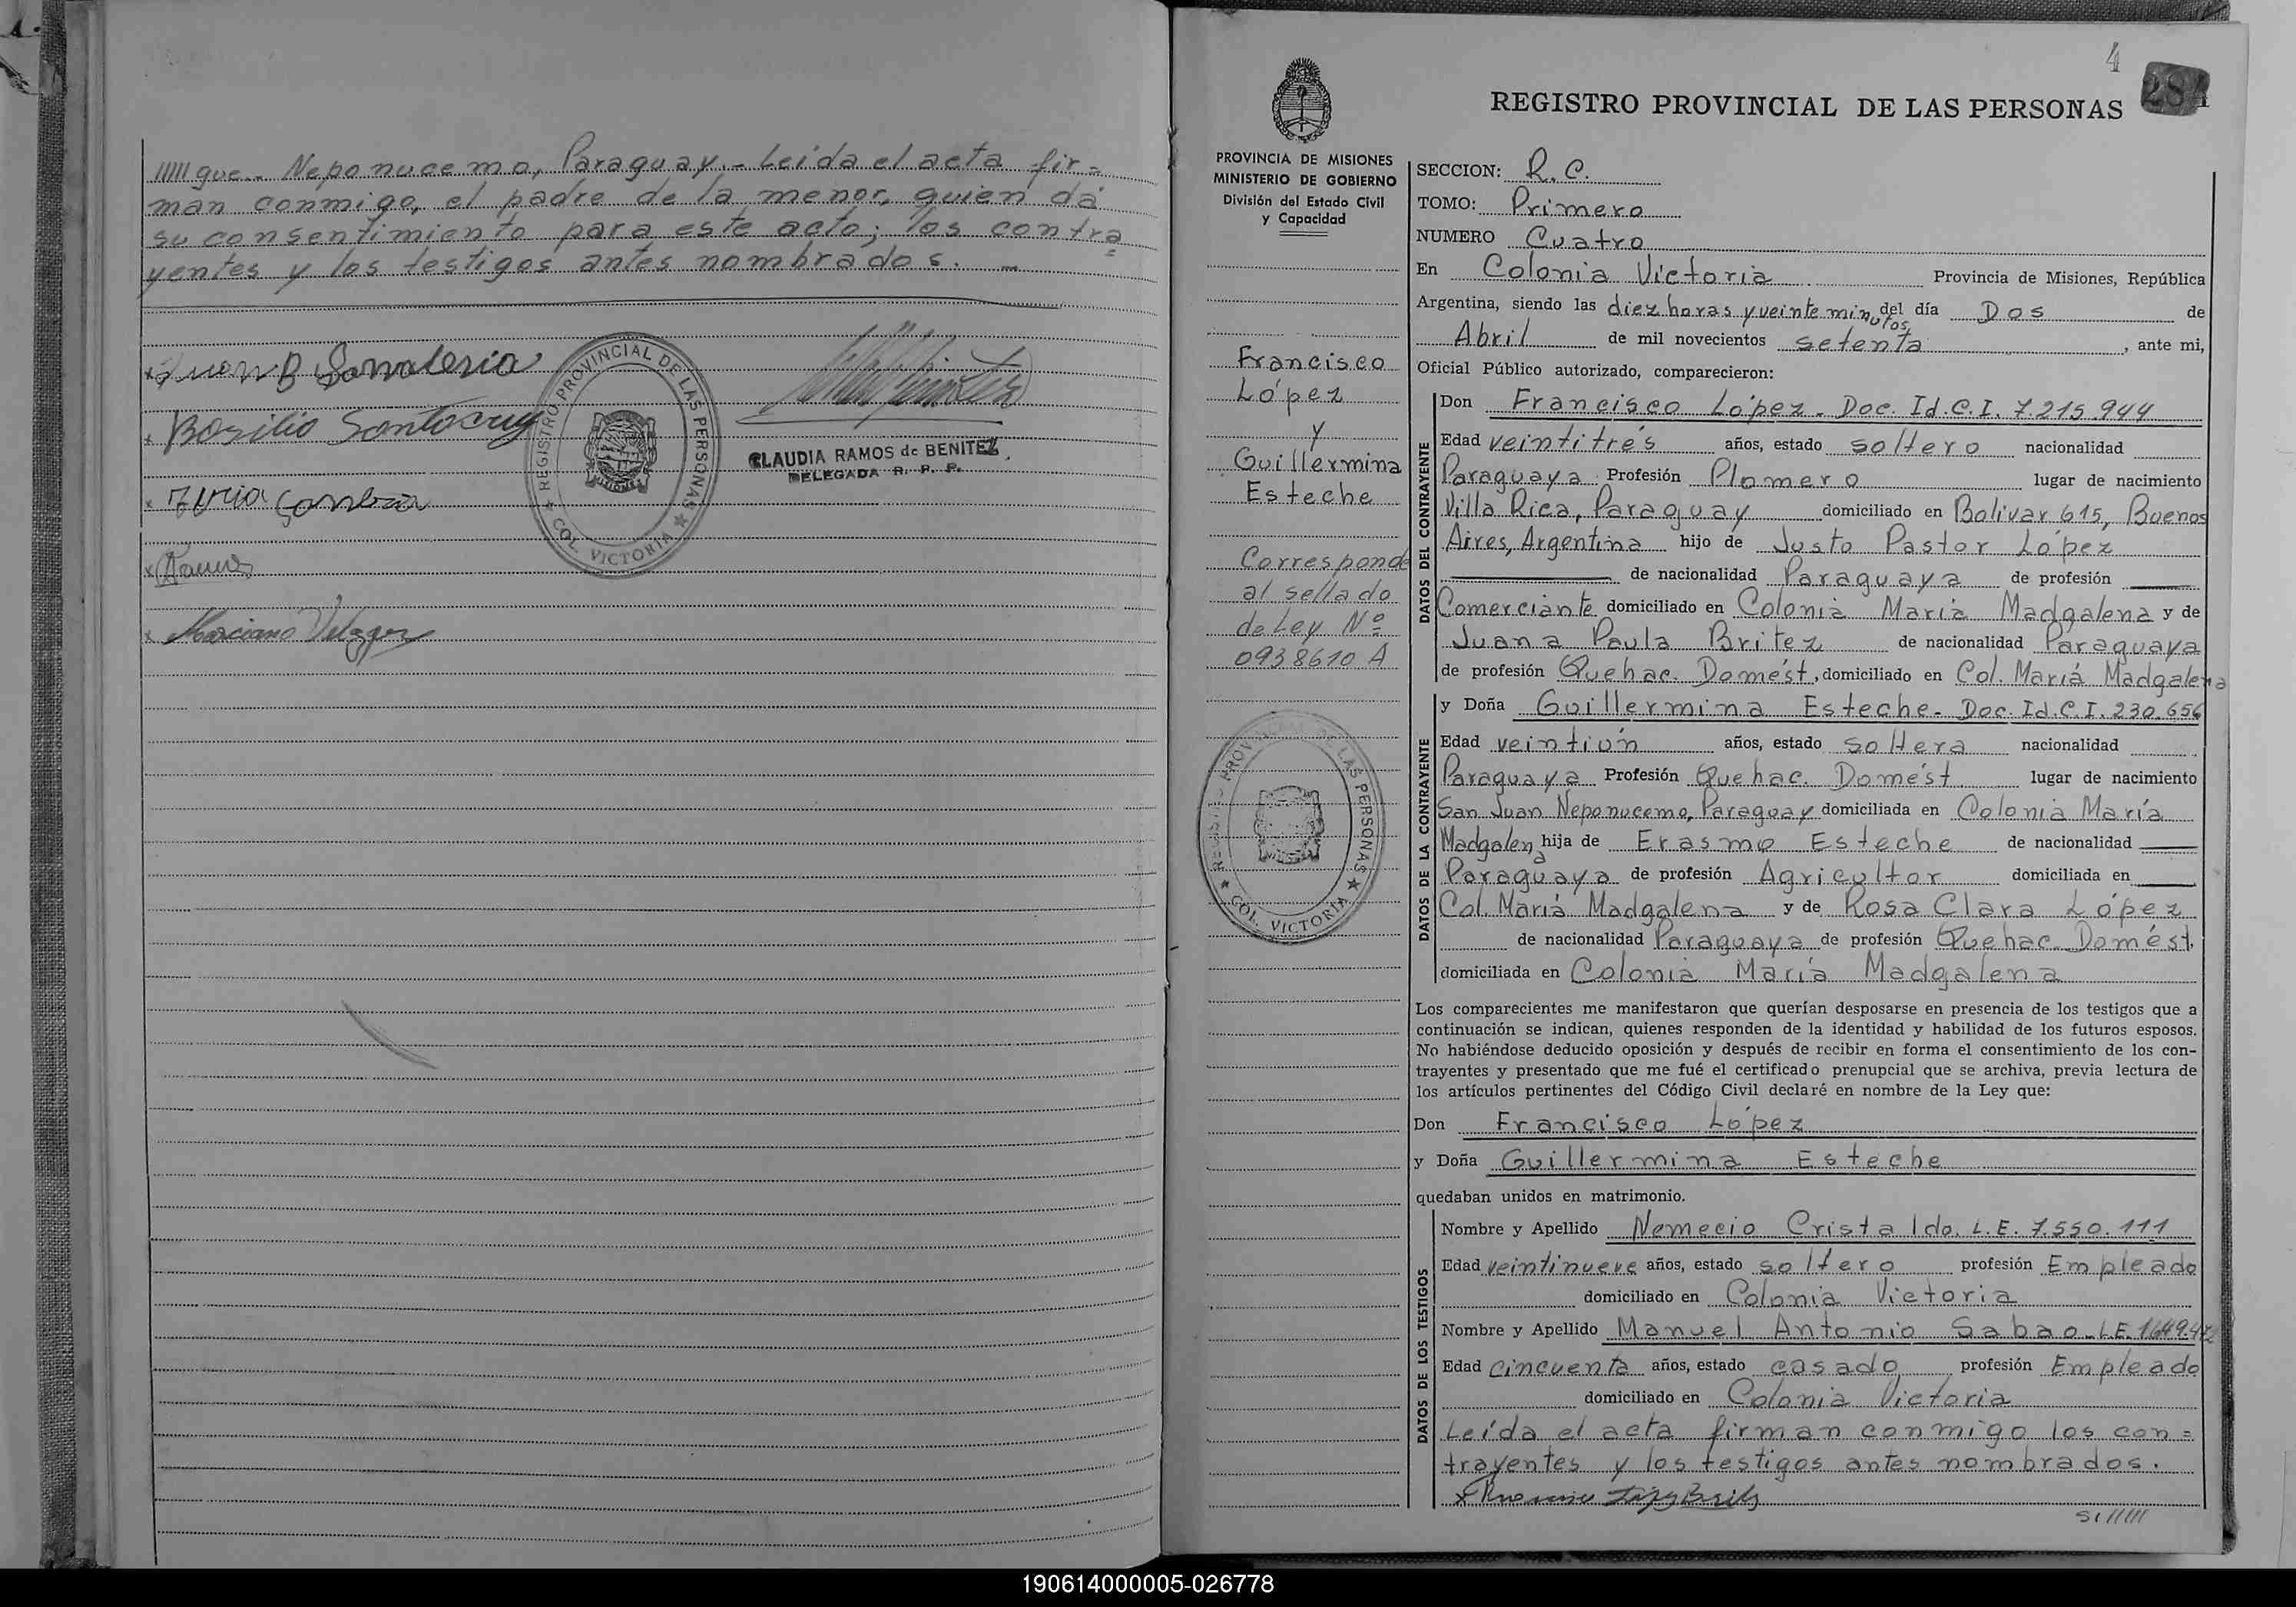 que.. Neponucemo, Paraguay.- Leída el acta fir=
man conmigo, el padre de la menor, quien dá
su consentimiento para este acto; los contra
yentes y los testigos antes nombrados. —
REGISTRO PROVINCIAL DE LAS PERSONAS
COL. VICTORIA
Basilio Santacruz
CLAUDIA RAMOS de BENITEZ
DELEGADA R. P. P.
Ramos
Marciano Velazquez
4
REGISTRO PROVINCIAL DE LAS PERSONAS
284
PROVINCIA DE MISIONES
MINISTERIO DE GOBIERNO
División del Estado Civil
y Capacidad
Francisco
López
y
Guillermina
Esteche
Corresponde
al sellado
de Ley Nº
0938610 A
REGISTRO PROVINCIAL DE LAS PERSONAS
COL. VICTORIA
SECCION: R. C.
TOMO: Primero
NUMERO Cuatro
En Colonia Victoria Provincia de Misiones, República
Argentina, siendo las diez horas y veinte minutos del día Dos de
Abril de mil novecientos setenta, ante mi,
Oficial Público autorizado, comparecieron:
DATOS DEL CONTRAYENTE
Don Francisco López. Doc. Id. C. I. 7.215.944
Edad veintitrés años, estado soltero nacionalidad
Paraguaya Profesión Plomero lugar de nacimiento
Villa Rica, Paraguay domiciliado en Bolivar 615, Buenos
Aires, Argentina hijo de Justo Pastor López
de nacionalidad Paraguaya de profesión
Comerciante domiciliado en Colonia Maria Madgalena y de
Juana Paula Britez de nacionalidad Paraguaya
de profesión Quehac. Domést, domiciliado en Col. Mariá Madgalena
DATOS DE LA CONTRAYENTE
y Doña Guillermina Esteche- Doc. Id. C. I. 230.656
Edad veintiún años, estado soltera nacionalidad
Paraguaya Profesión Quehac. Domést lugar de nacimiento
San Juan Neponucemo, Paraguay domiciliada en Colonia María
Madgalena hija de Erasmo Esteche de nacionalidad
Paraguaya de profesión Agricultor domiciliada en
Col. Mariá Madgalena y de Rosa Clara López
de nacionalidad Paraguaya de profesión Quehac. Domést.
domiciliada en Colonia María Madgalena
Los comparecientes me manifestaron que querían desposarse en presencia de los testigos que a
continuación se indican, quienes responden de la identidad y habilidad de los futuros esposos.
No habiéndose deducido oposición y después de recibir en forma el consentimiento de los con-
trayentes y presentado que me fué el certificado prenupcial que se archiva, previa lectura de
los artículos pertinentes del Código Civil declaré en nombre de la Ley que:
Don Francisco López
y Doña Guillermina Esteche
quedaban unidos en matrimonio.
DATOS DE LOS TESTIGOS
Nombre y Apellido Nemecio Cristaldo. L. E. 7.550.111
Edad veintinueve años, estado soltero profesión Empleado
domiciliado en Colonia Victoria
Nombre y Apellido Manuel Antonio Sabao. L.E.
Edad cincuenta años, estado casado profesión Empleado
domiciliado en Colonia Victoria
Leída el acta firman conmigo los con=
trayentes y los testigos antes nombrados.
190614000005-026778